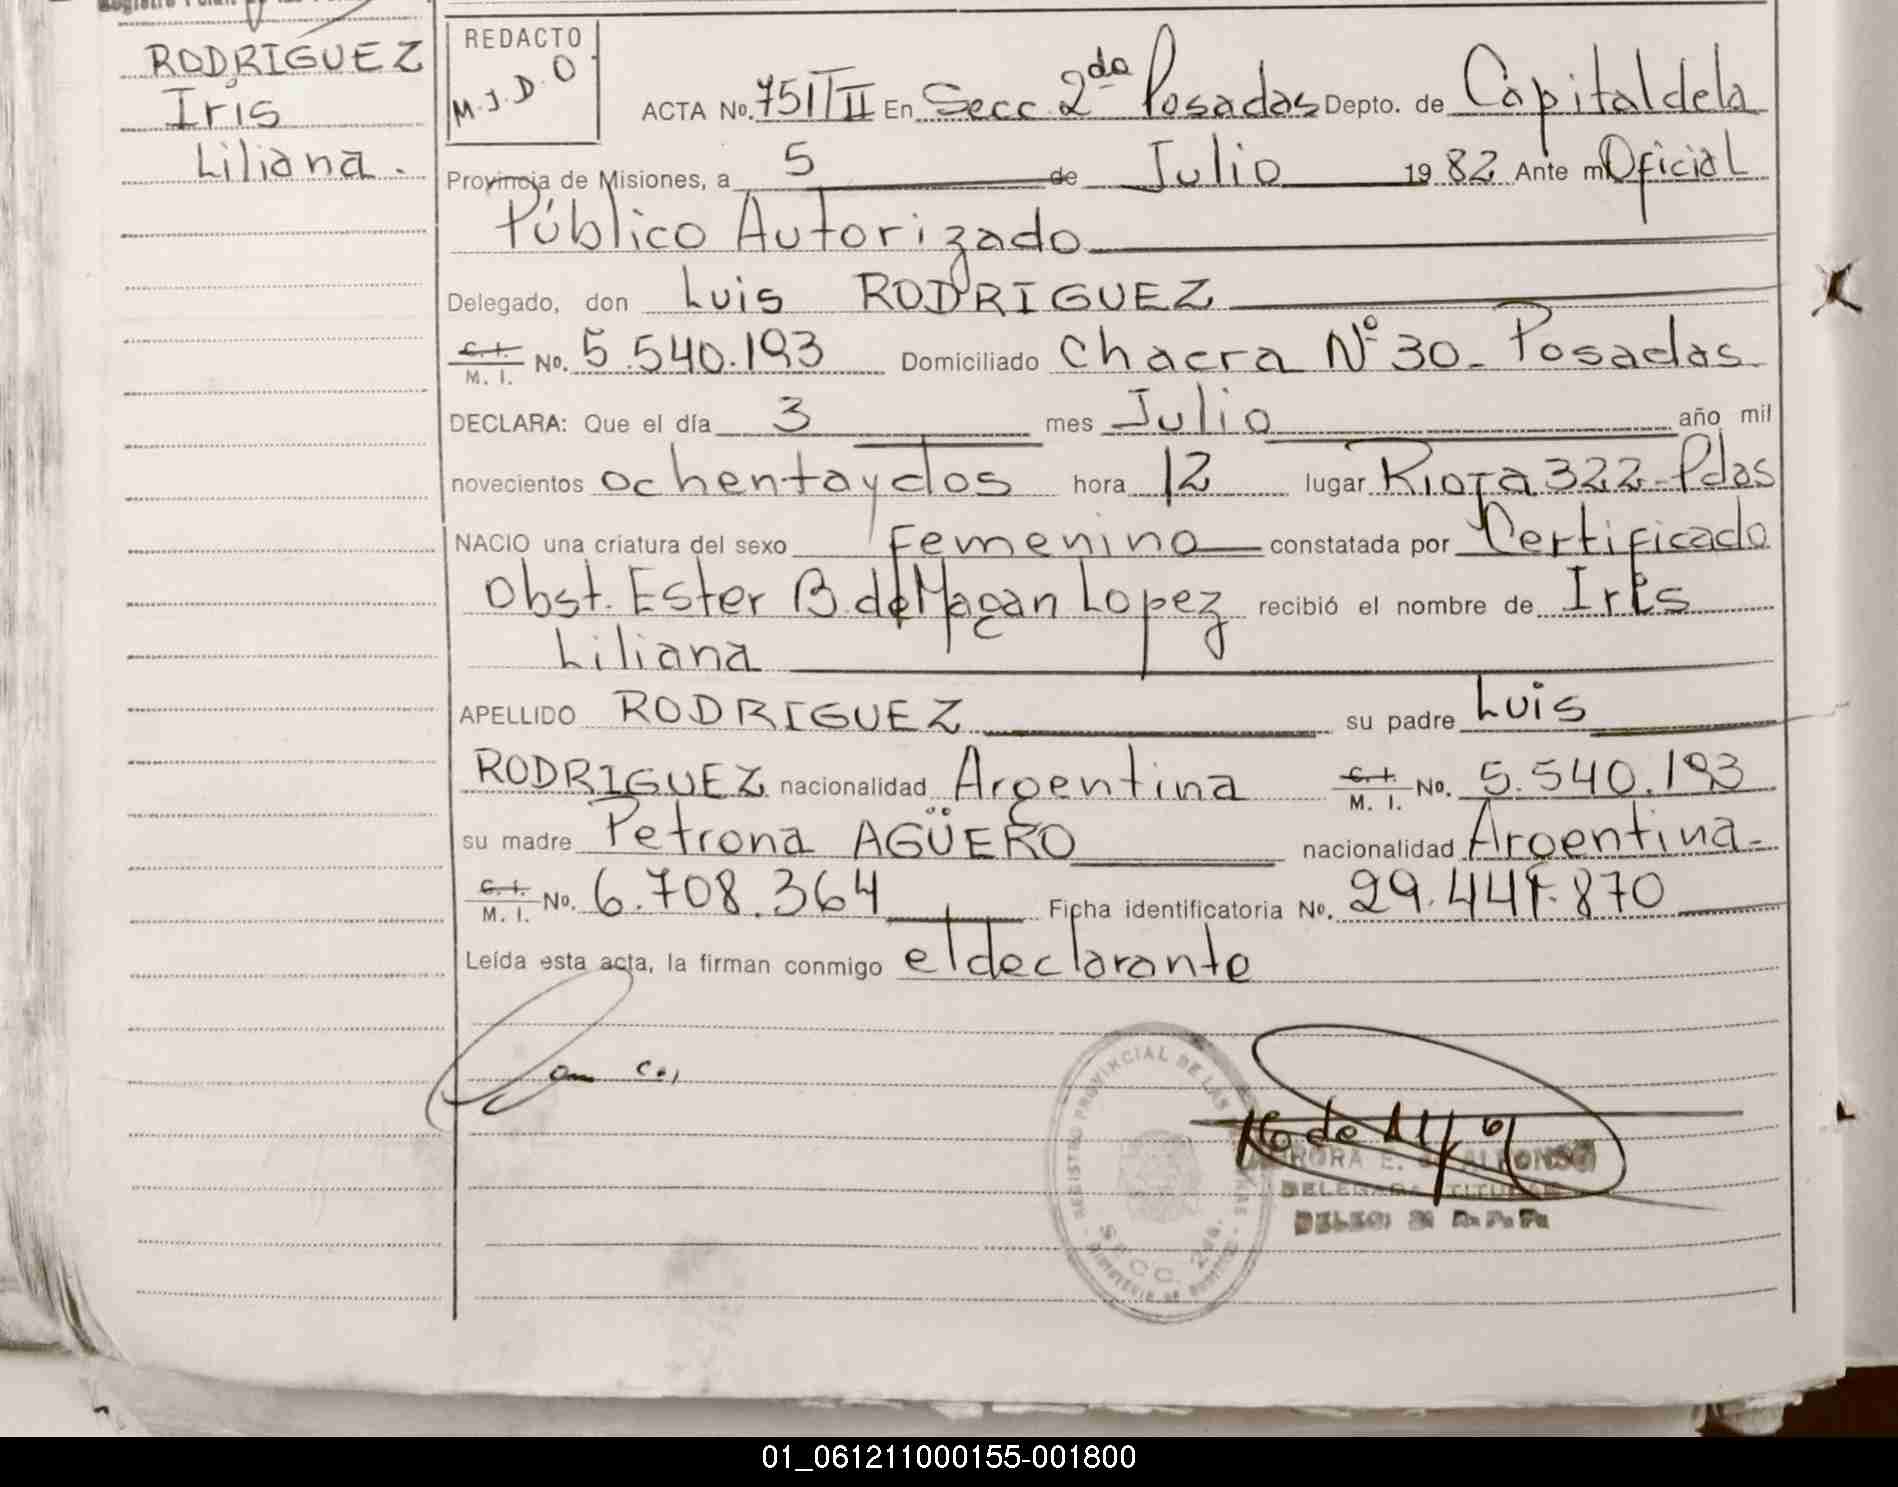 RODRIGUEZ
Iris
Liliana.
REDACTO
M.J.D.O
ACTA No. 751 T II En Secc. 2da Posadas Depto. de Capital de la
Provincia de Misiones, a 5 de Julio 1982 Ante mí Oficial
Público Autorizado
Delegado, don Luis RODRIGUEZ
C. I. M. I. No. 5.540.193 Domiciliado Chacra Nº 30- Posadas-
DECLARA: Que el día 3 mes Julio año mil
novecientos ochenta y dos hora 12 lugar Rioja 322- Pdas
NACIO una criatura del sexo Femenino constatada por Certificado
Obst. Ester B. de Magan Lopez recibió el nombre de Iris
Liliana
APELLIDO RODRIGUEZ su padre Luis
RODRIGUEZ nacionalidad Argentina C. I. M. I. No. 5.540.193
su madre Petrona AGÜERO nacionalidad Argentina-
C. I. M. I. No. 6.708.364 Ficha identificatoria No. 29.441.870
Leída esta acta, la firman conmigo el declarante
REGISTRO PROVINCIAL DE LAS PERSONAS
SECC. 2da.
E. de ALFONSO
DELEGADA TITULAR
01_061211000155-001800